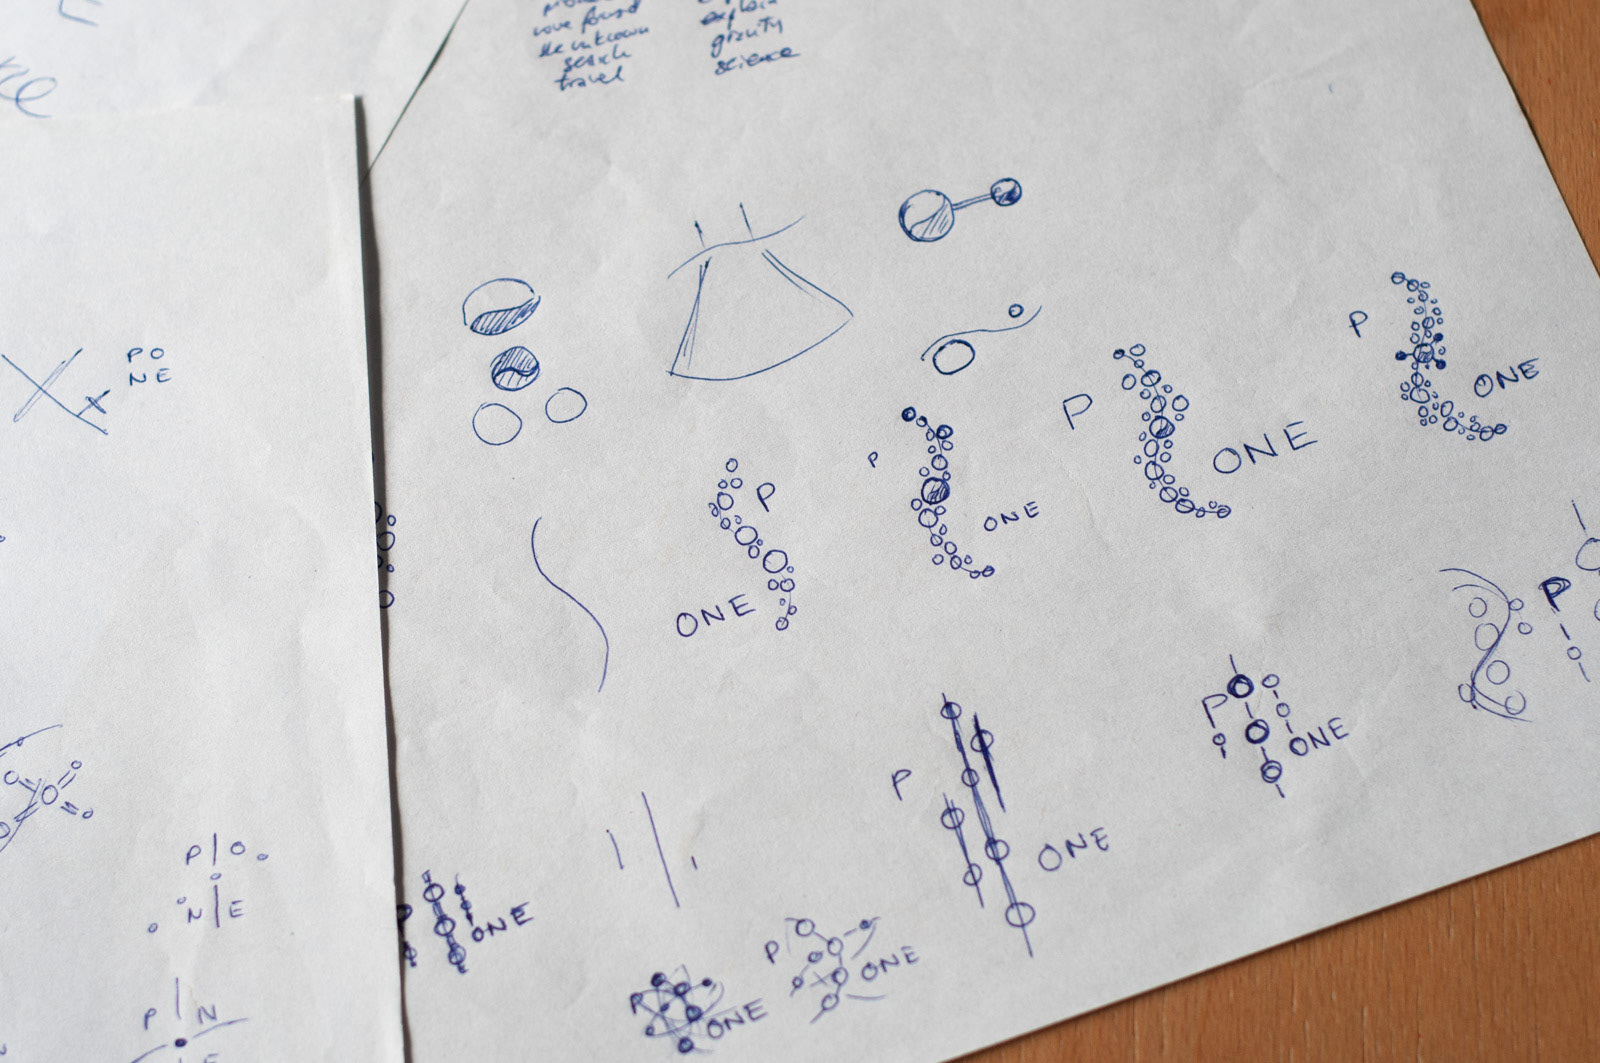 ne
the unknown
search
travel
explain
gravity
science
PO
NE
P
ONE
P
ONE
P
ONE
P
ONE
P
P
ONE
P
ONE
P O
N E
ONE
P
ONE
P
ONE
P N
E